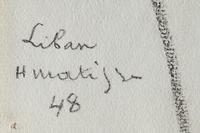 Liban
H matisse
48